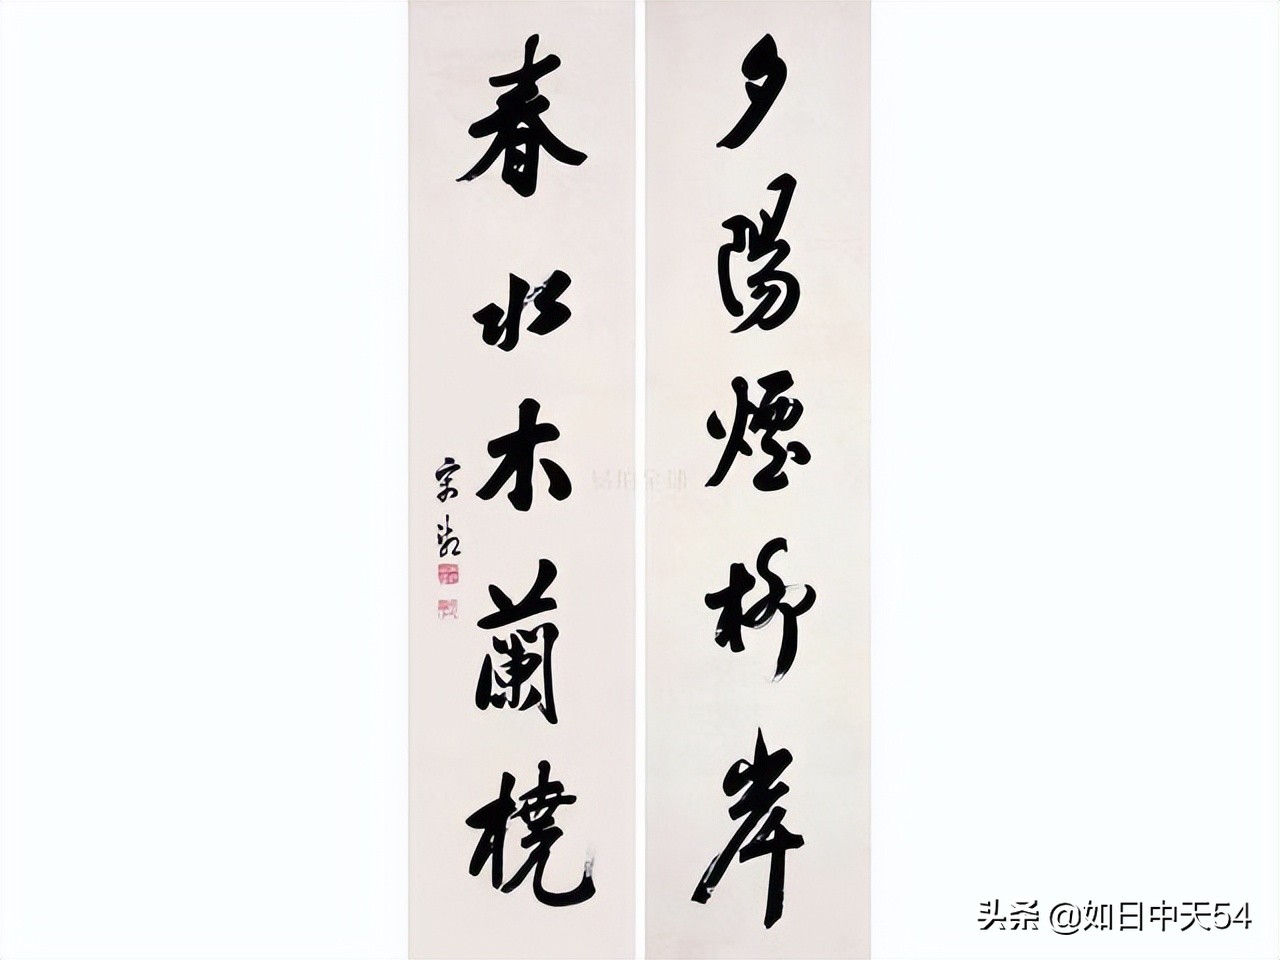 夕陽煙柳岸
春水木蘭橈
宋犖
头条 @如日中天54